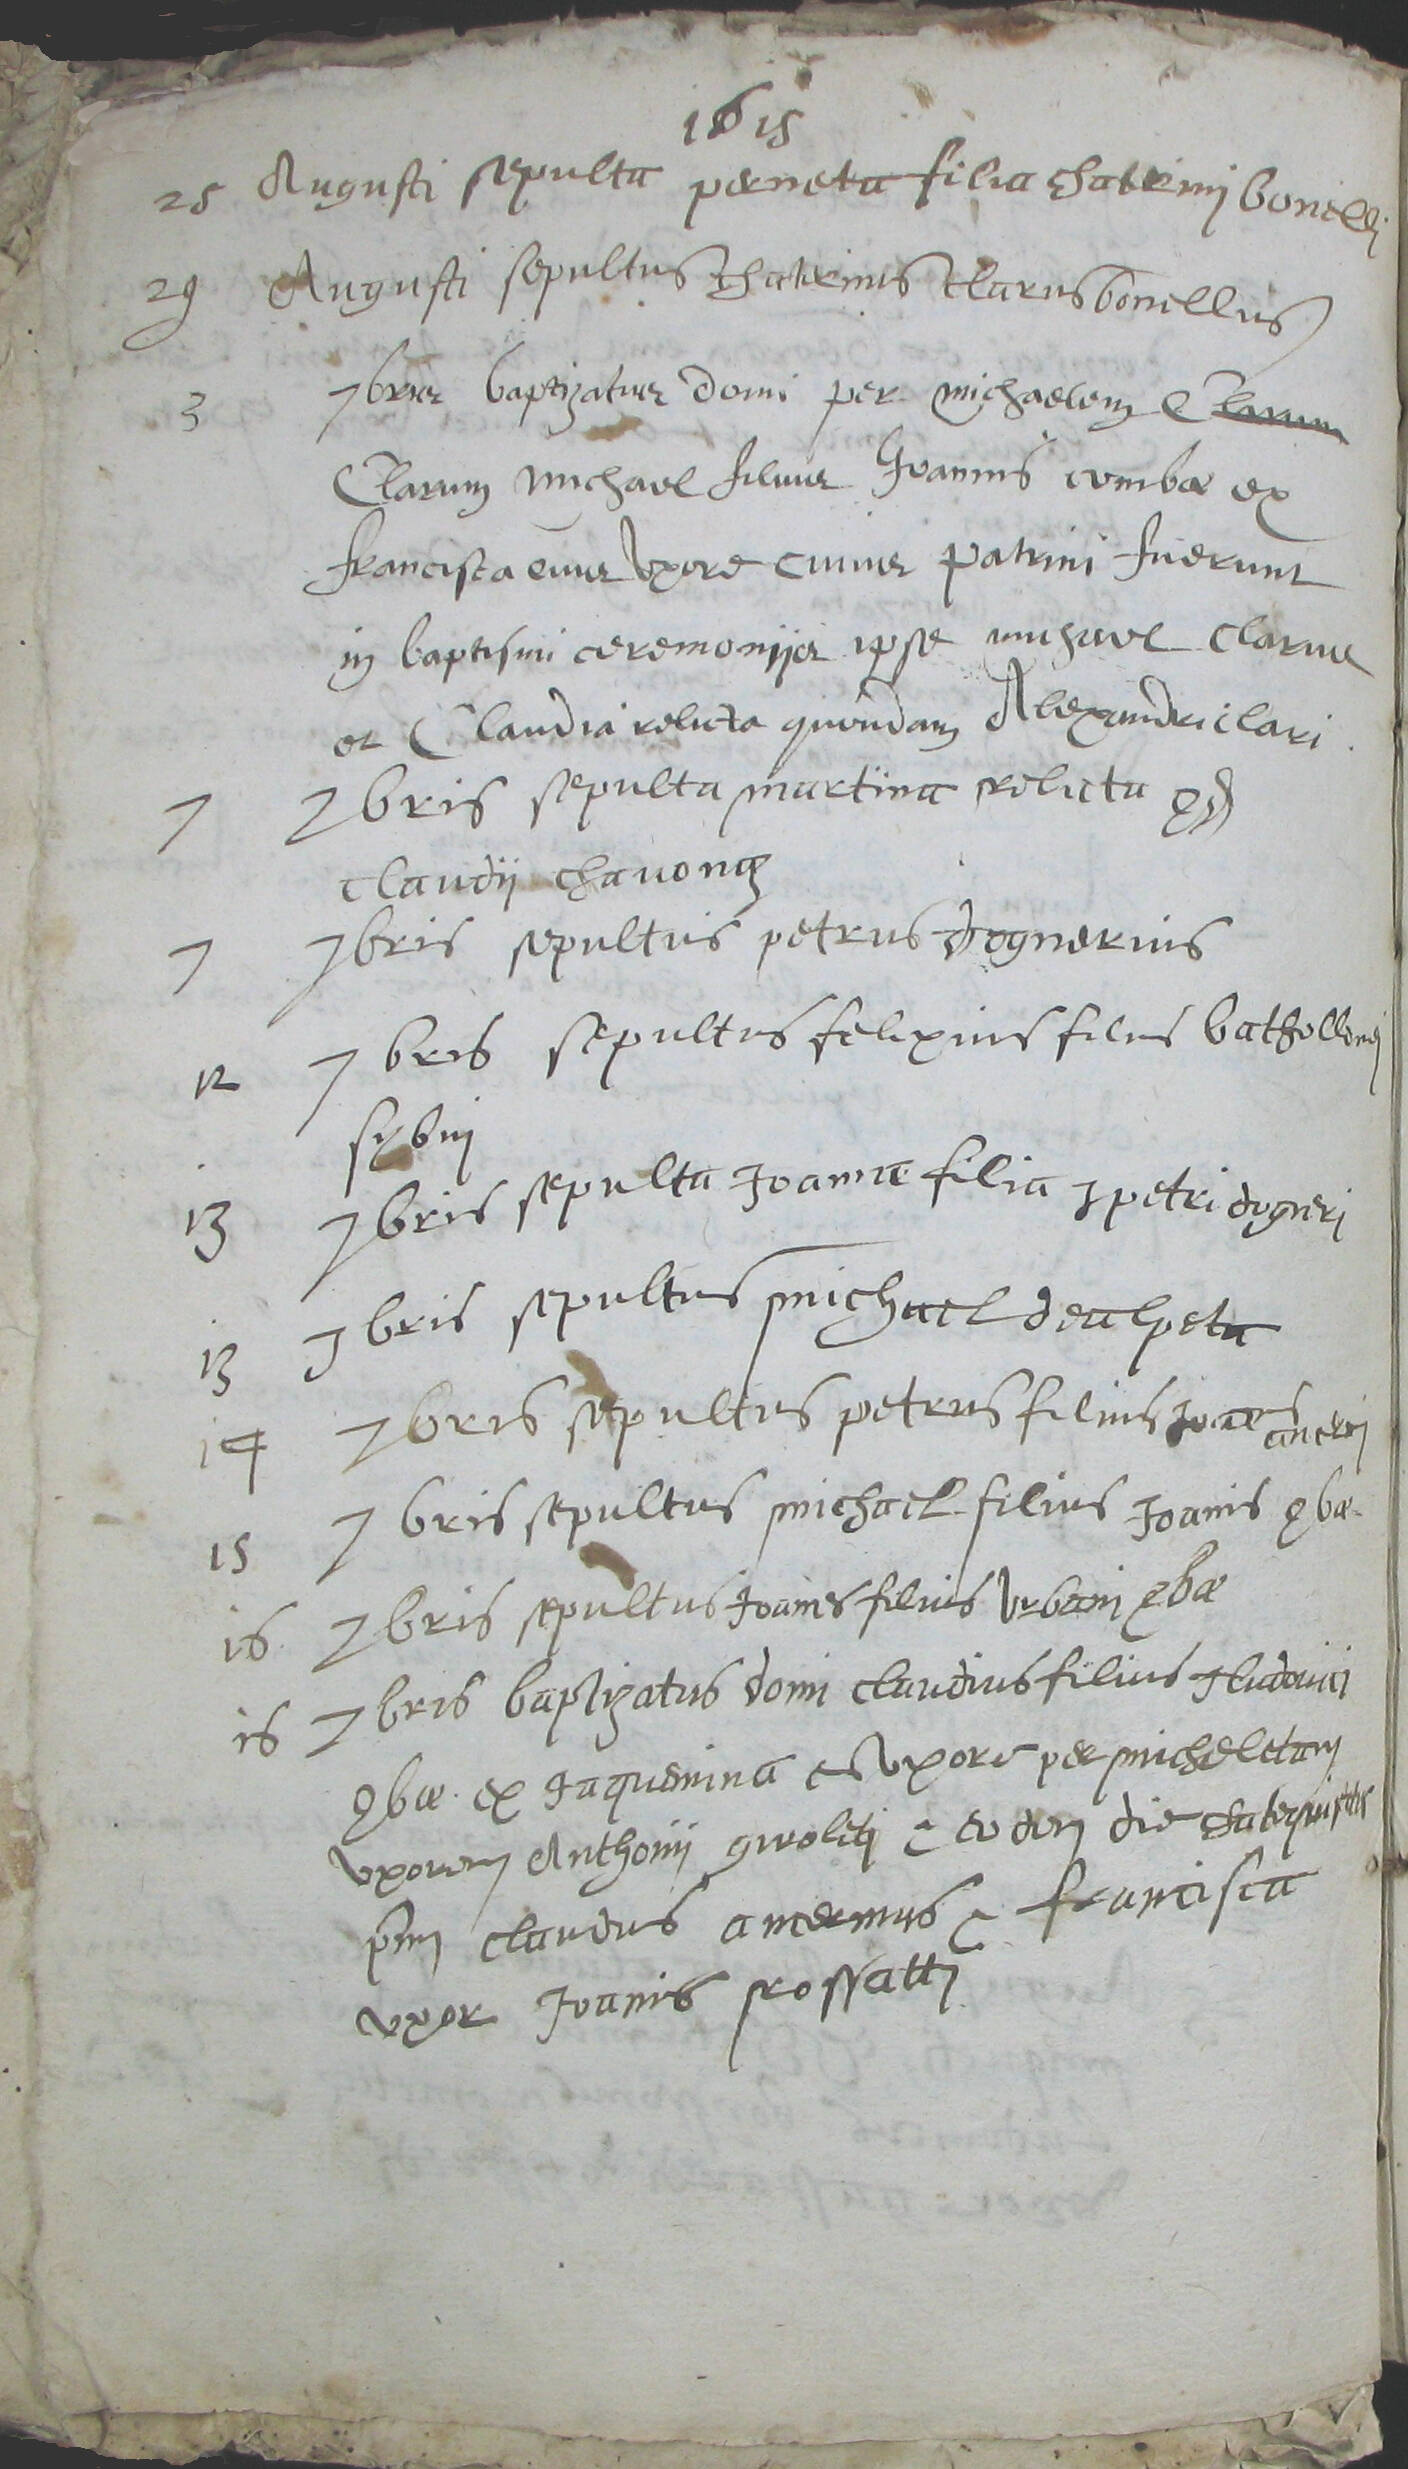 1615
25 Augusti sepulta perneta filia chaterinj bonellj
29 Augusti sepultus chaterinus clarus bonellus
3 7bris baptizatus domi per michaelem Clarum
Clarum michael filius Joannis combæ ex
francisca eius uxore cuius patrini fuerunt
in baptismi ceremonijs ipse michael clarus
et Claudia relicta quondam Alexandri clari.
7 7bris sepulta martina relicta qd
claudij chauong
7 7bris sepultus petrus dognerius
12 7bris sepultus felixius filius bathollomej
13 7bris sepulta Joanna filia J petri dogneri
13 7bris sepultus michael dealpeta
14 7bris sepultus petrus filius Joanis
15 7bris sepultus michael filius Joanis 9bæ
16 7bris sepultus Joanes filius urbani 9bæ
16 7bris baptizatus domi claudius filius ludouici
9bæ ex Jaquemina eius uxore per micheletam
uxorem Anthonij giroletj & eodem die
claudius & francisca
uxor Joanis rossattj